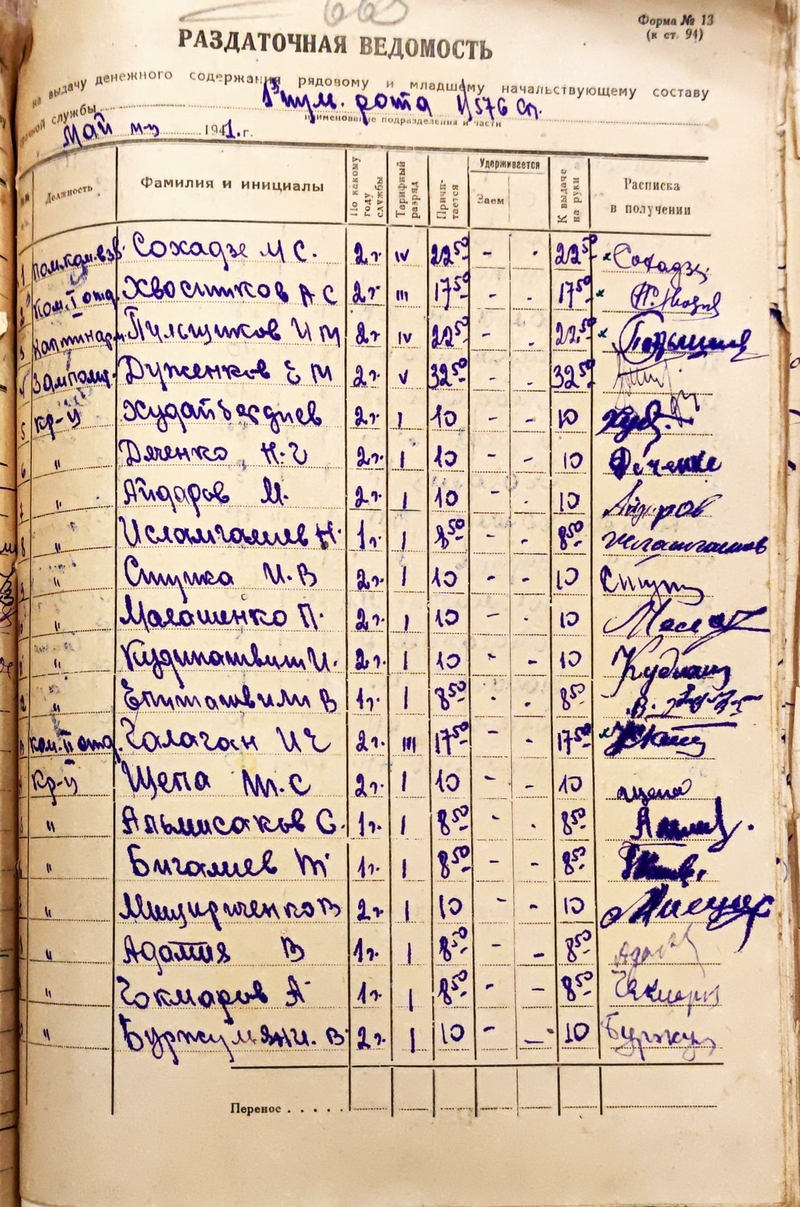 663
Форма № 13
(к ст. 94)
РАЗДАТОЧНАЯ ВЕДОМОСТЬ
на выдачу денежного содержания рядовому и младшему начальствующему составу
срочной службы пул. рота 1/576 сп.
наименование подразделения и части
май м-ц 1941 г.
Должность Фамилия и инициалы По какому году службы Тарифный разряд Причитается Удерживается Заем К выдаче на руки Расписка в получении
1 пом.ком.взв. Сохадзе М С. 2г IV 22 50 - - 22 50 Сохадзе
2 Ком. I отд. Хвостиков А С 2г III 17 50 - - 17 50
3 Пильщиков И М 2г IV 22 50 - - 22 50
4 Зам.полит. Друженков Е М 2г. V 32 50 - - 32 50
5 Кр-ц 2г. I 10 - - 10 Худ.
6 " Дяченко Н.Г 2г. I 10 - - 10 Дяченко
7 " Айдаров М. 2г. I 10 - - 10
8 " Исламгалиев Н. 1г. I 8 50 - - 8 50
9 " Ступка И.В 2г. I 10 - - 10 Ступ
" Малашенко П. 2г. I 10 - - 10
" И. 2г. I 10 - - 10
" Епиташвили В 1г. I 8 50 - - 8 50
ком. II отд. Галаган И Г 2г. III 17 50 - - 17 50
Кр-ц Щепа М.С 2г. I 10 - - 10 щепа
" Альмисаков С. 1г. I 8 50 - - 8 50
" Бигалиев Т 1г. I 8 50 - - 8 50
" В 2г I 10 - - 10
" Адамия В 1г. I 8 50 - - 8 50
" Чокмаров А 1г. I 8 50 - - 8 50
" Буржумян И. В 2г. I 10 - - 10 Буржум
Перенос . . . . .